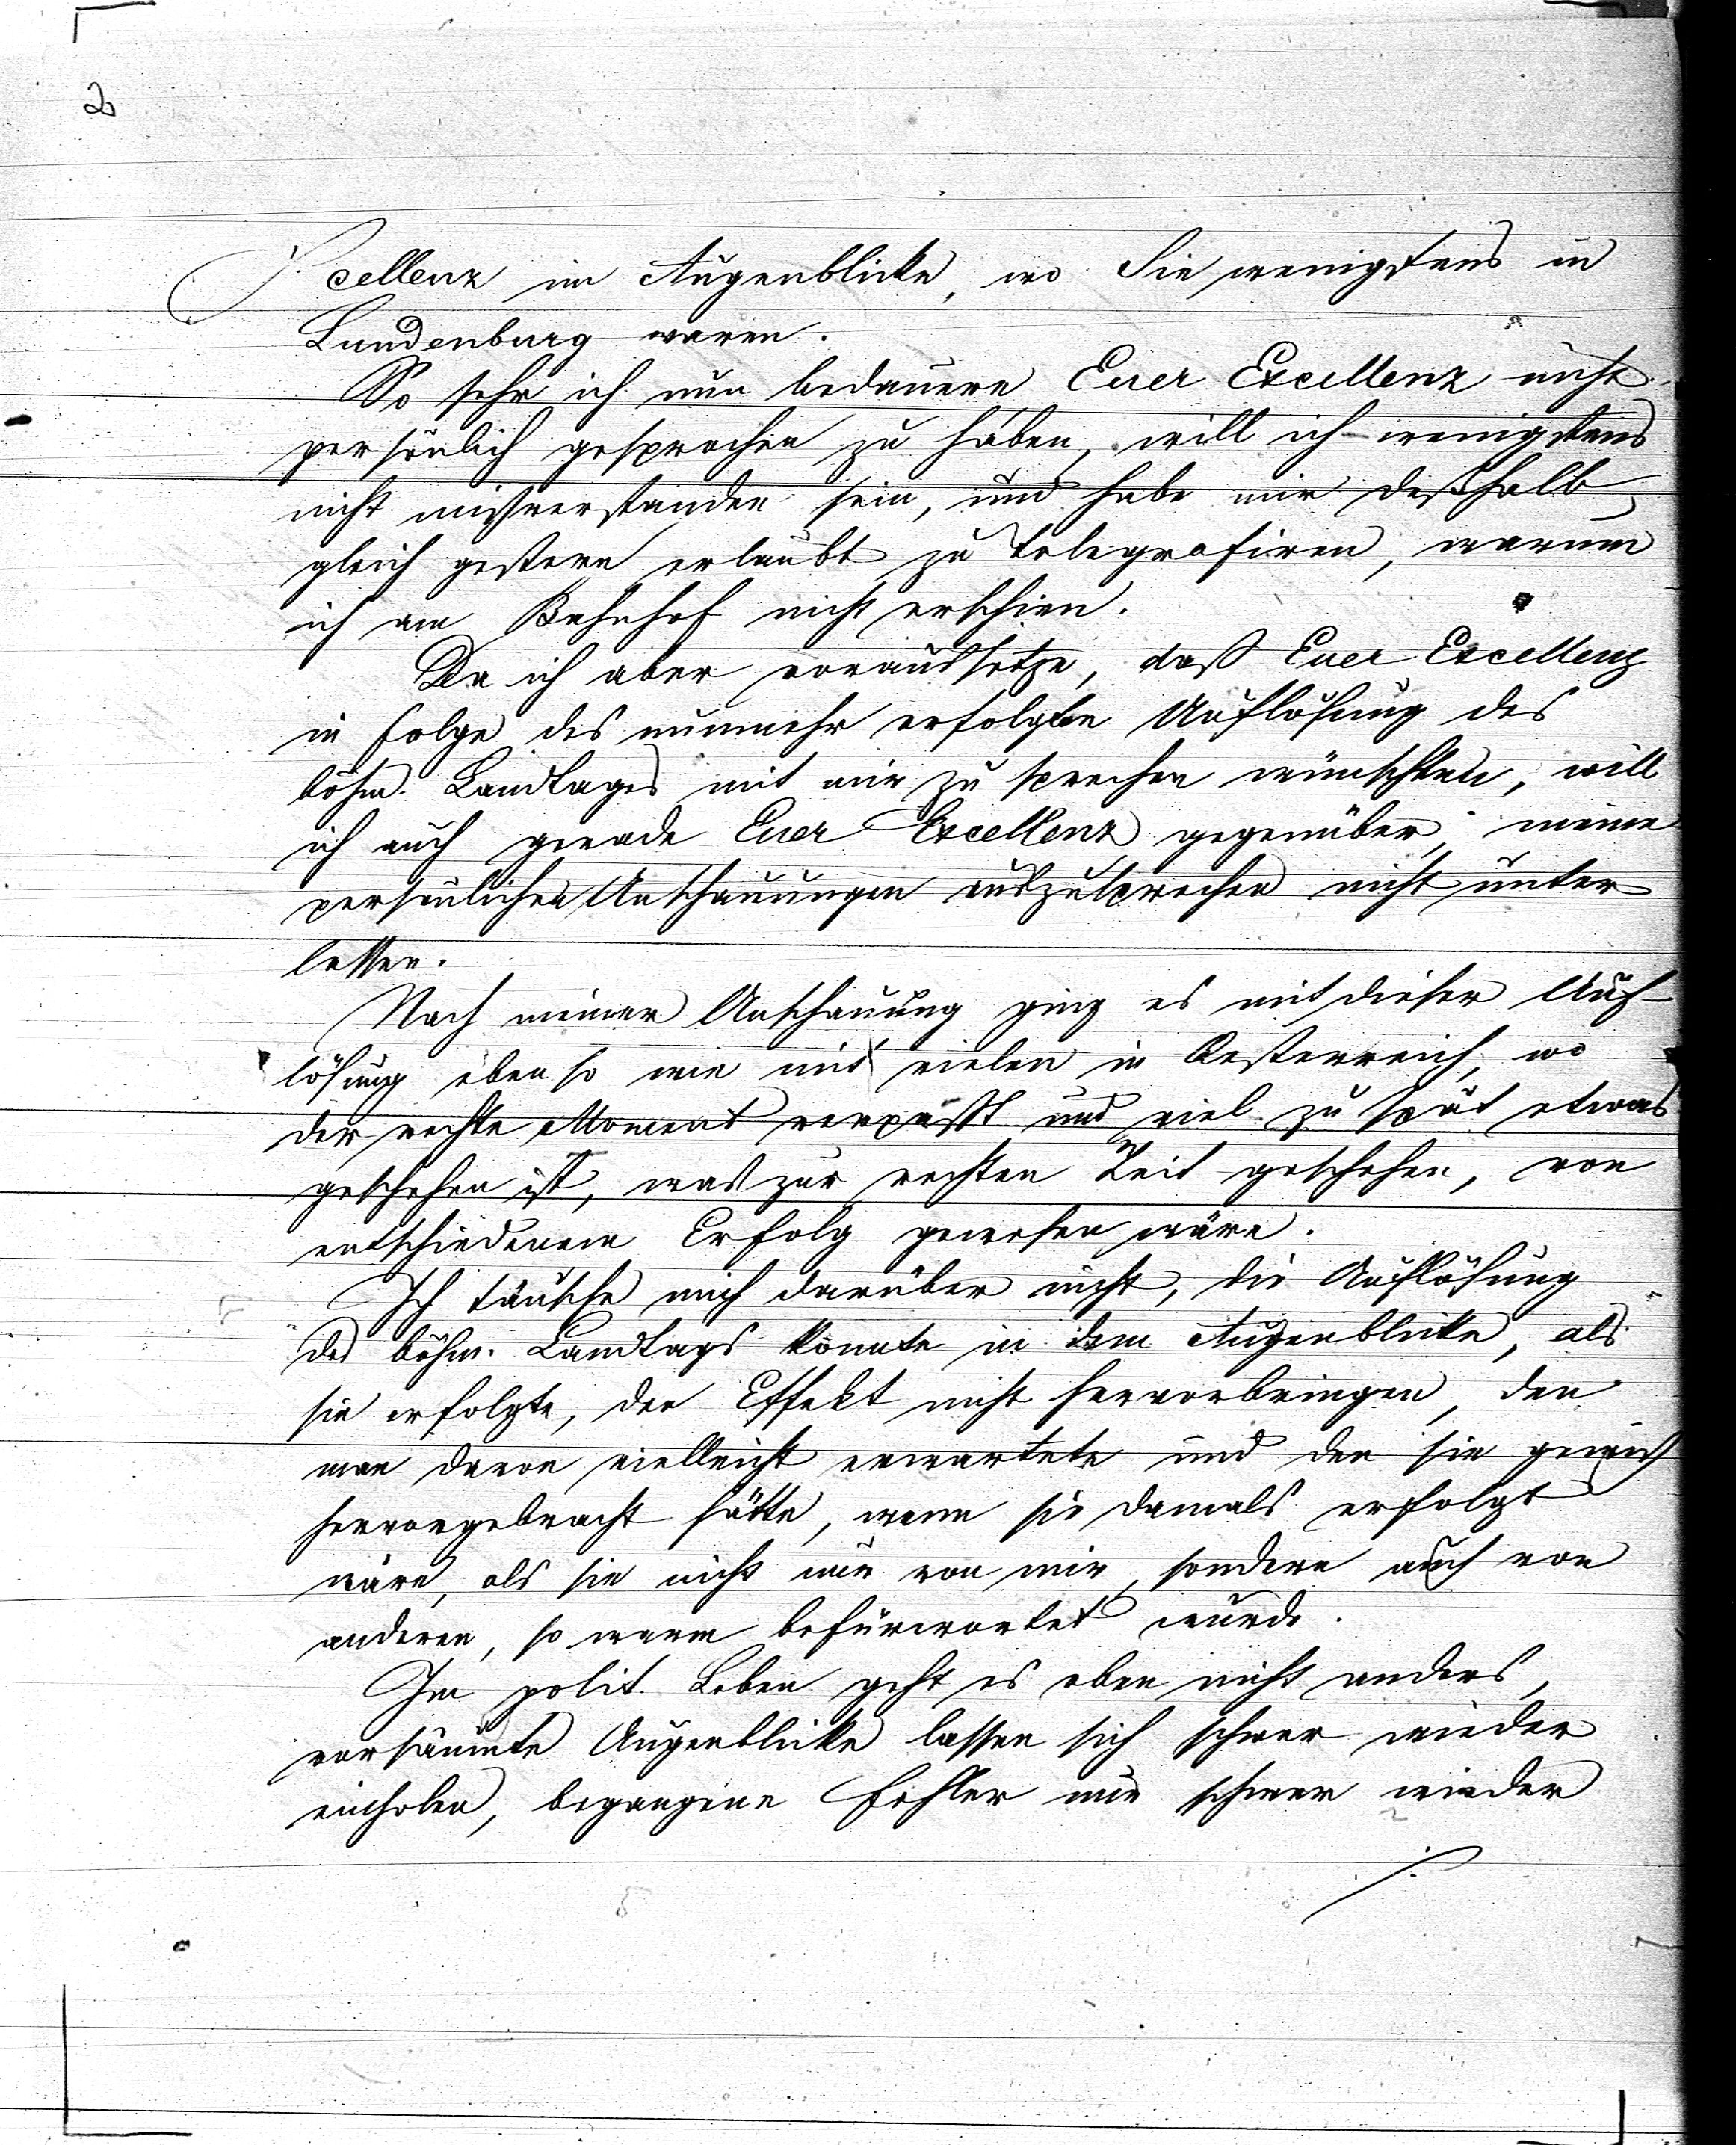 2
cellenz im Augenblicke, wo Sie wenigstens in
Lundenburg waren.
So sehr ich nun bedauere Euer Excellenz nicht
persönlich gesprochen zu haben, will ich wenigstens
nicht mißverstanden sein, und habe mir deßhalb
gleich gestern erlaubt zu telegrafiren, warum
ich am Bahnhof nicht erschien.
Da ich aber voraussetze, daß Euer Excellenz
in Folge des nunmehr erfolgten Auflösung des
böhm. Landtages mit mir zu sprechen wünschten, will
ich auch gerade Euer Excellenz gegenüber, meine
persönlichen Anschauungen auszusprechen nicht unter
lassen.
Nach meiner Anschauung ging es mit dieser Auf-
lösung eben so wie mit vielen in Oesterreich, wo
der rechte Moment verpaßt und viel zu spät etwas
geschehen ist, was zur rechten Zeit geschehen, von
entschiedenem Erfolg gewesen wäre.
Ich täusche mich darüber nicht, die Auflösung
des böhm. Landtags konnte in dem Augenblicke, als
sie erfolgte, den Effekt nicht hervorbringen, den
man davon vielleicht erwartete und den sie gewiß
hervorgebracht hätte, wenn sie damals erfolgt
wäre, als sie nicht nur von mir, sondern auch von
anderen, so warm befürwortet wurde.
Im polit. Leben geht es eben nicht anders,
versäumte Augenblicke lassen sich schwer wieder
einholen, begangene Fehler nur schwer wieder
./.